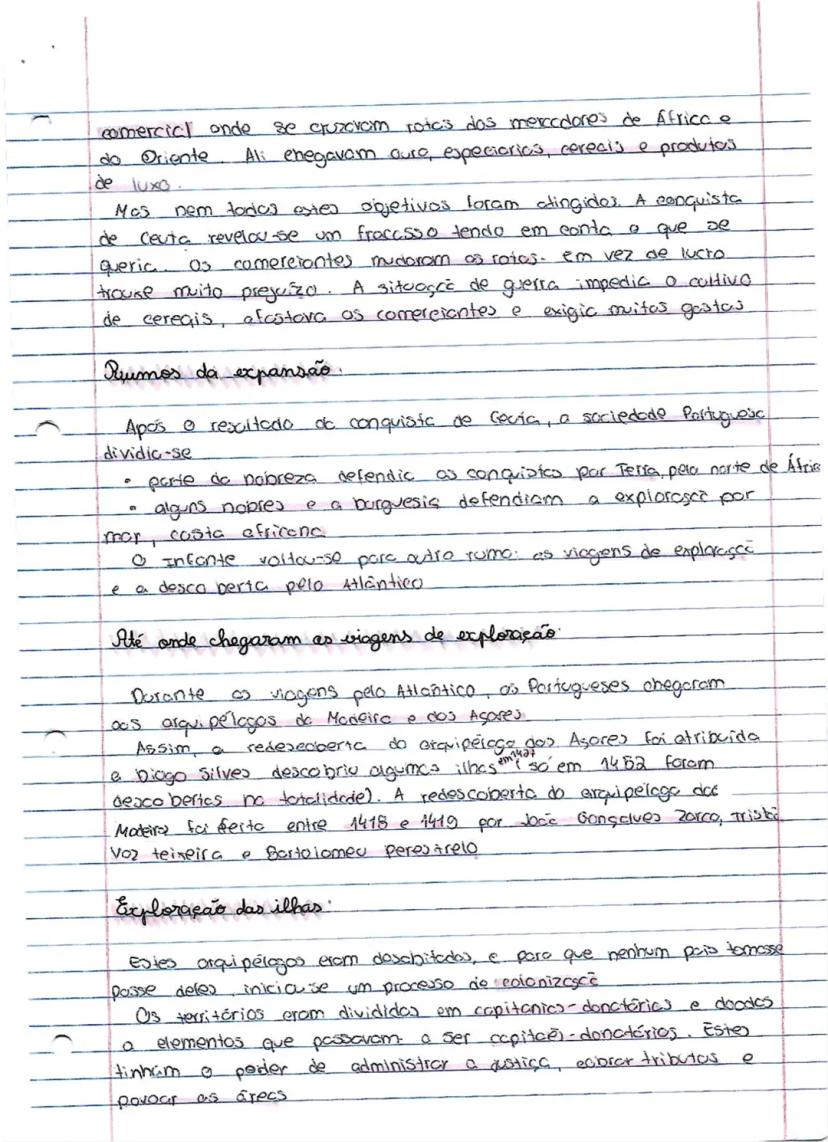 comercial onde se cruzavam rotas dos mercadores de África e
do Oriente. Ali chegavam ouro, especiarias, cereais e produtos
de luxo.
Mas nem todos estes objetivos foram atingidos. A conquista
de Ceuta revelou-se um fracasso tendo em conta o que se
queria. Os comerciantes mudaram as rotas. em vez de lucro
trouxe muito prejuízo. A situação de guerra impedia o cultivo
de cereais, afastava os comerciantes e exigia muitos gastos
Rumos da expansão.
Após o resultado da conquista de Ceuta, a sociedade Portuguesa
dividia-se
• parte da nobreza defendia as conquistas por Terra, pelo norte de África
• alguns nobres e a burguesia defendiam a exploração por
mar, costa africana
O Infante voltou-se para outro rumo: as viagens de exploração
e a descoberta pelo Atlântico
Até onde chegaram as viagens de exploração.
Durante as viagens pelo Atlântico, os Portugueses chegaram
aos arquipélagos da Madeira e dos Açores
Assim, a redescoberta do arquipélago dos Açores foi atribuída
a Diogo Silves descobriu algumas ilhas em 1427 (só em 1452 foram
descobertas na totalidade). A redescoberta do arquipélago da
Madeira foi feita entre 1418 e 1419 por João Gonçalves Zarco, Tristão
Vaz teixeira e Bartolomeu Perestrelo
Exploração das ilhas.
Estes arquipélagos eram desabitados, e para que nenhum país tomasse
posse deles, inicia-se um processo de colonização
Os territórios eram divididos em capitanias-donatárias e doados
a elementos que passavam a ser capitães-donatários. Estes
tinham o poder de administrar a justiça, cobrar tributos e
povoar as áreas